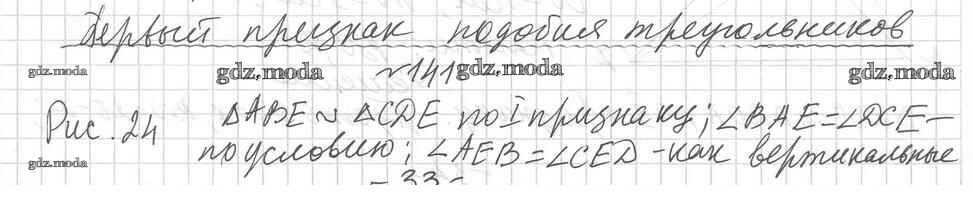 Первый признак подобия треугольников
gdz.moda gdz.moda №141 gdz.moda gdz.moda
Рис. 24 ΔABE ~ ΔCDE по I признаку; ∠BAE = ∠DCE —
по условию; ∠AEB = ∠CED - как вертикальные
gdz.moda
- 33 -